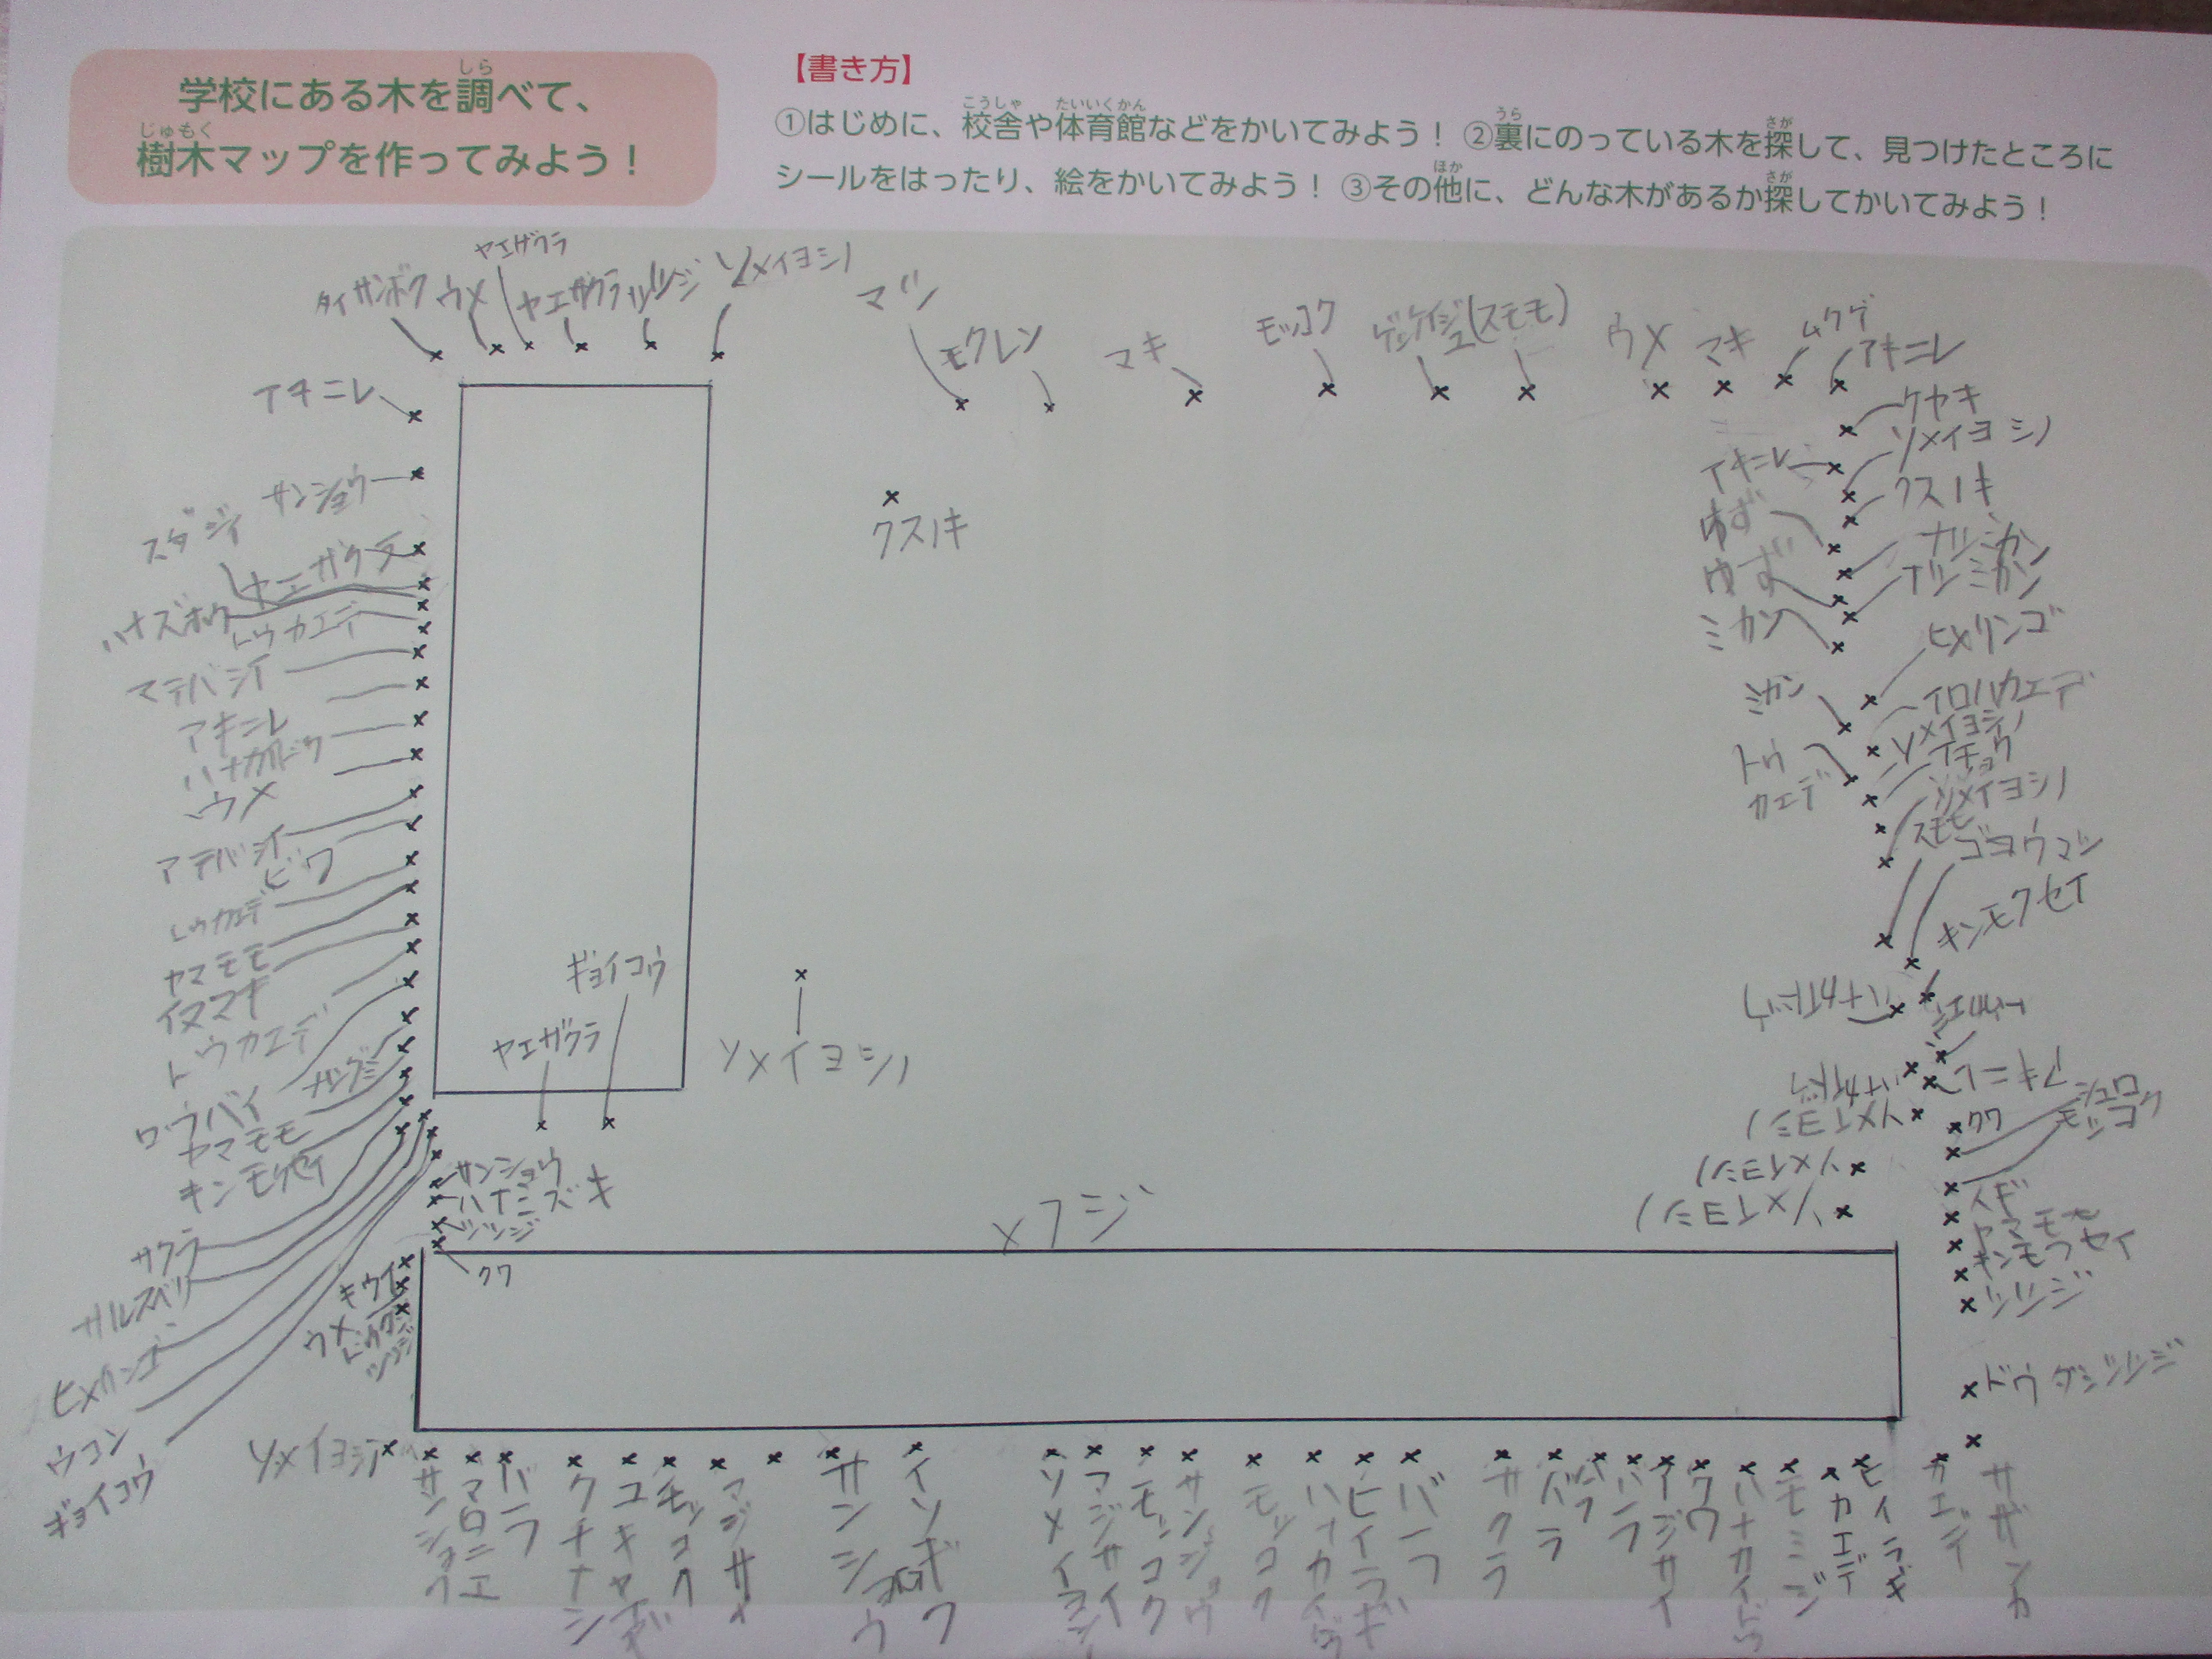 学校にある木を調べて、
樹木マップを作ってみよう！
【書き方】
①はじめに、校舎や体育館などをかいてみよう！ ②裏にのっている木を探して、見つけたところに
シールをはったり、絵をかいてみよう！ ③その他に、どんな木があるか探してかいてみよう！
タイサンボク
ウメ
ヤエザクラ
ヤエザクラ
ツツジ
ソメイヨシノ
マツ
モクレン
マキ
モッコク
(スモモ)
ウメ
マキ
ムクゲ
アキニレ
アキニレ
サンショウ
スダジイ
ヤエザクラ
ハナズホウ
トウカエデ
マテバシイ
アキニレ
ハナカイドウ
ウメ
アテバシイ
ビワ
トウカエデ
ヤマモモ
イヌマキ
トウカエデ
ロウバイ
ナツグミ
ヤマモモ
キンモクセイ
サクラ
サルスベリ
ヒメリンゴ
ウコン
ギョイコウ
クスノキ
ギョイコウ
ヤエザクラ
ソメイヨシノ
サンショウ
ハナミズキ
ツツジ
クワ
キウイ
ウメ
フジ
ケヤキ
ソメイヨシノ
アキニレ
クスノキ
ゆず
ナツミカン
ゆず
ナツミカン
ミカン
ヒメリンゴ
ミカン
イロハカエデ
ソメイヨシノ
イチョウ
トウ
カエデ
ソメイヨシノ
スモモ
ゴヨウマツ
キンモクセイ
ハナカイドウ
ハナカイドウ
アキニレ
ソメイヨシノ
クワ
シュロ
モッコク
ソメイヨシノ
ソメイヨシノ
スギ
ヤマモモ
キンモクセイ
ツツジ
ドウダンツツジ
ソメイヨシノ
サンショウ
マロニエ
バラ
クチナシ
ユキヤナギ
モッコク
サンショウ
ソメイヨシノ
アジサイ
モッコク
サンショウ
モッコク
ハナカイドウ
ヒイラギ
バラ
サクラ
バラ
バラ
バラ
アジサイ
クワ
ハナカイドウ
モミジ
カエデ
ヒイラギ
カエデ
サザンカ